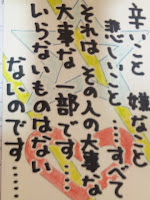 辛いこと 嫌なこと
悲しいこと…すべて
それは その人の大事な
大事な 一部です…
いらないものはない
ないのです……